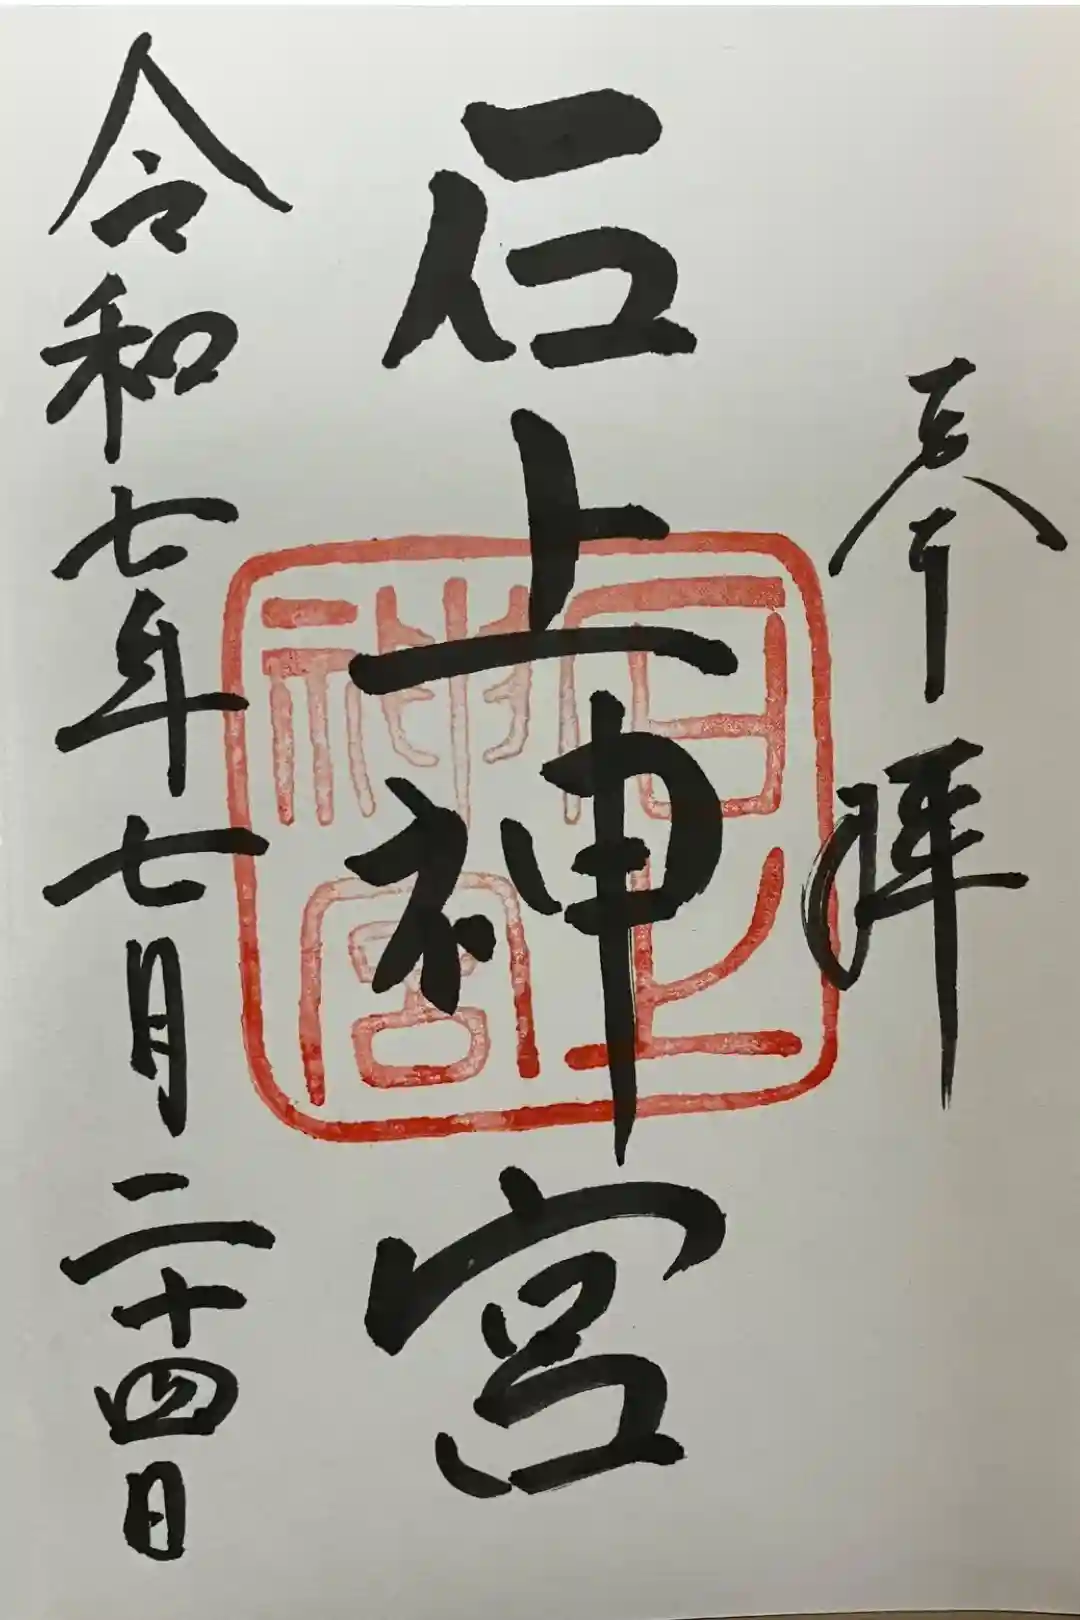 奉拝
石上神宮
石上神宮
令和七年七月二十四日